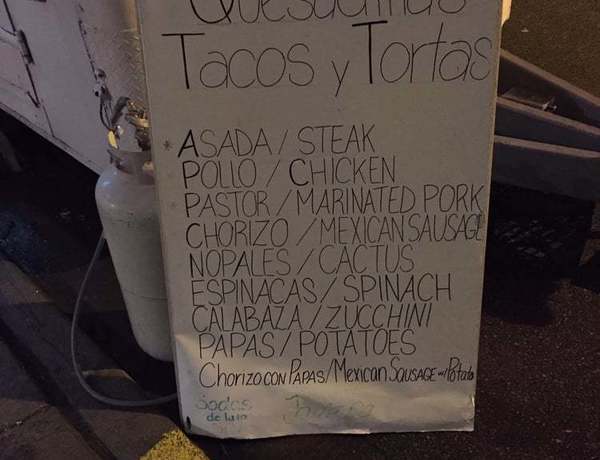 Quesadillas
Tacos y Tortas
* ASADA / STEAK
POLLO / CHICKEN
PASTOR / MARINATED PORK
CHORIZO / MEXICAN SAUSAGE
NOPALES / CACTUS
ESPINACAS / SPINACH
CALABAZA / ZUCCHINI
PAPAS / POTATOES
CHORIZO CON PAPAS / MEXICAN SAUSAGE w/ Potato
Sodas
de la